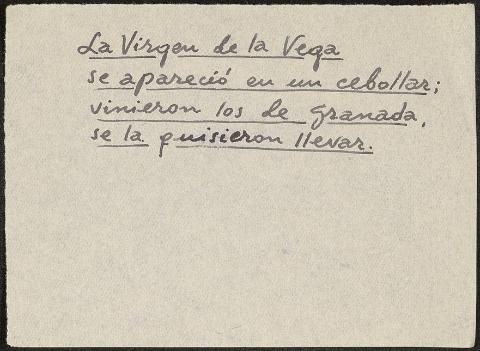 La Virgen de la Vega
se apareció en un cebollar;
vinieron los de granada,
se la quisieron llevar.